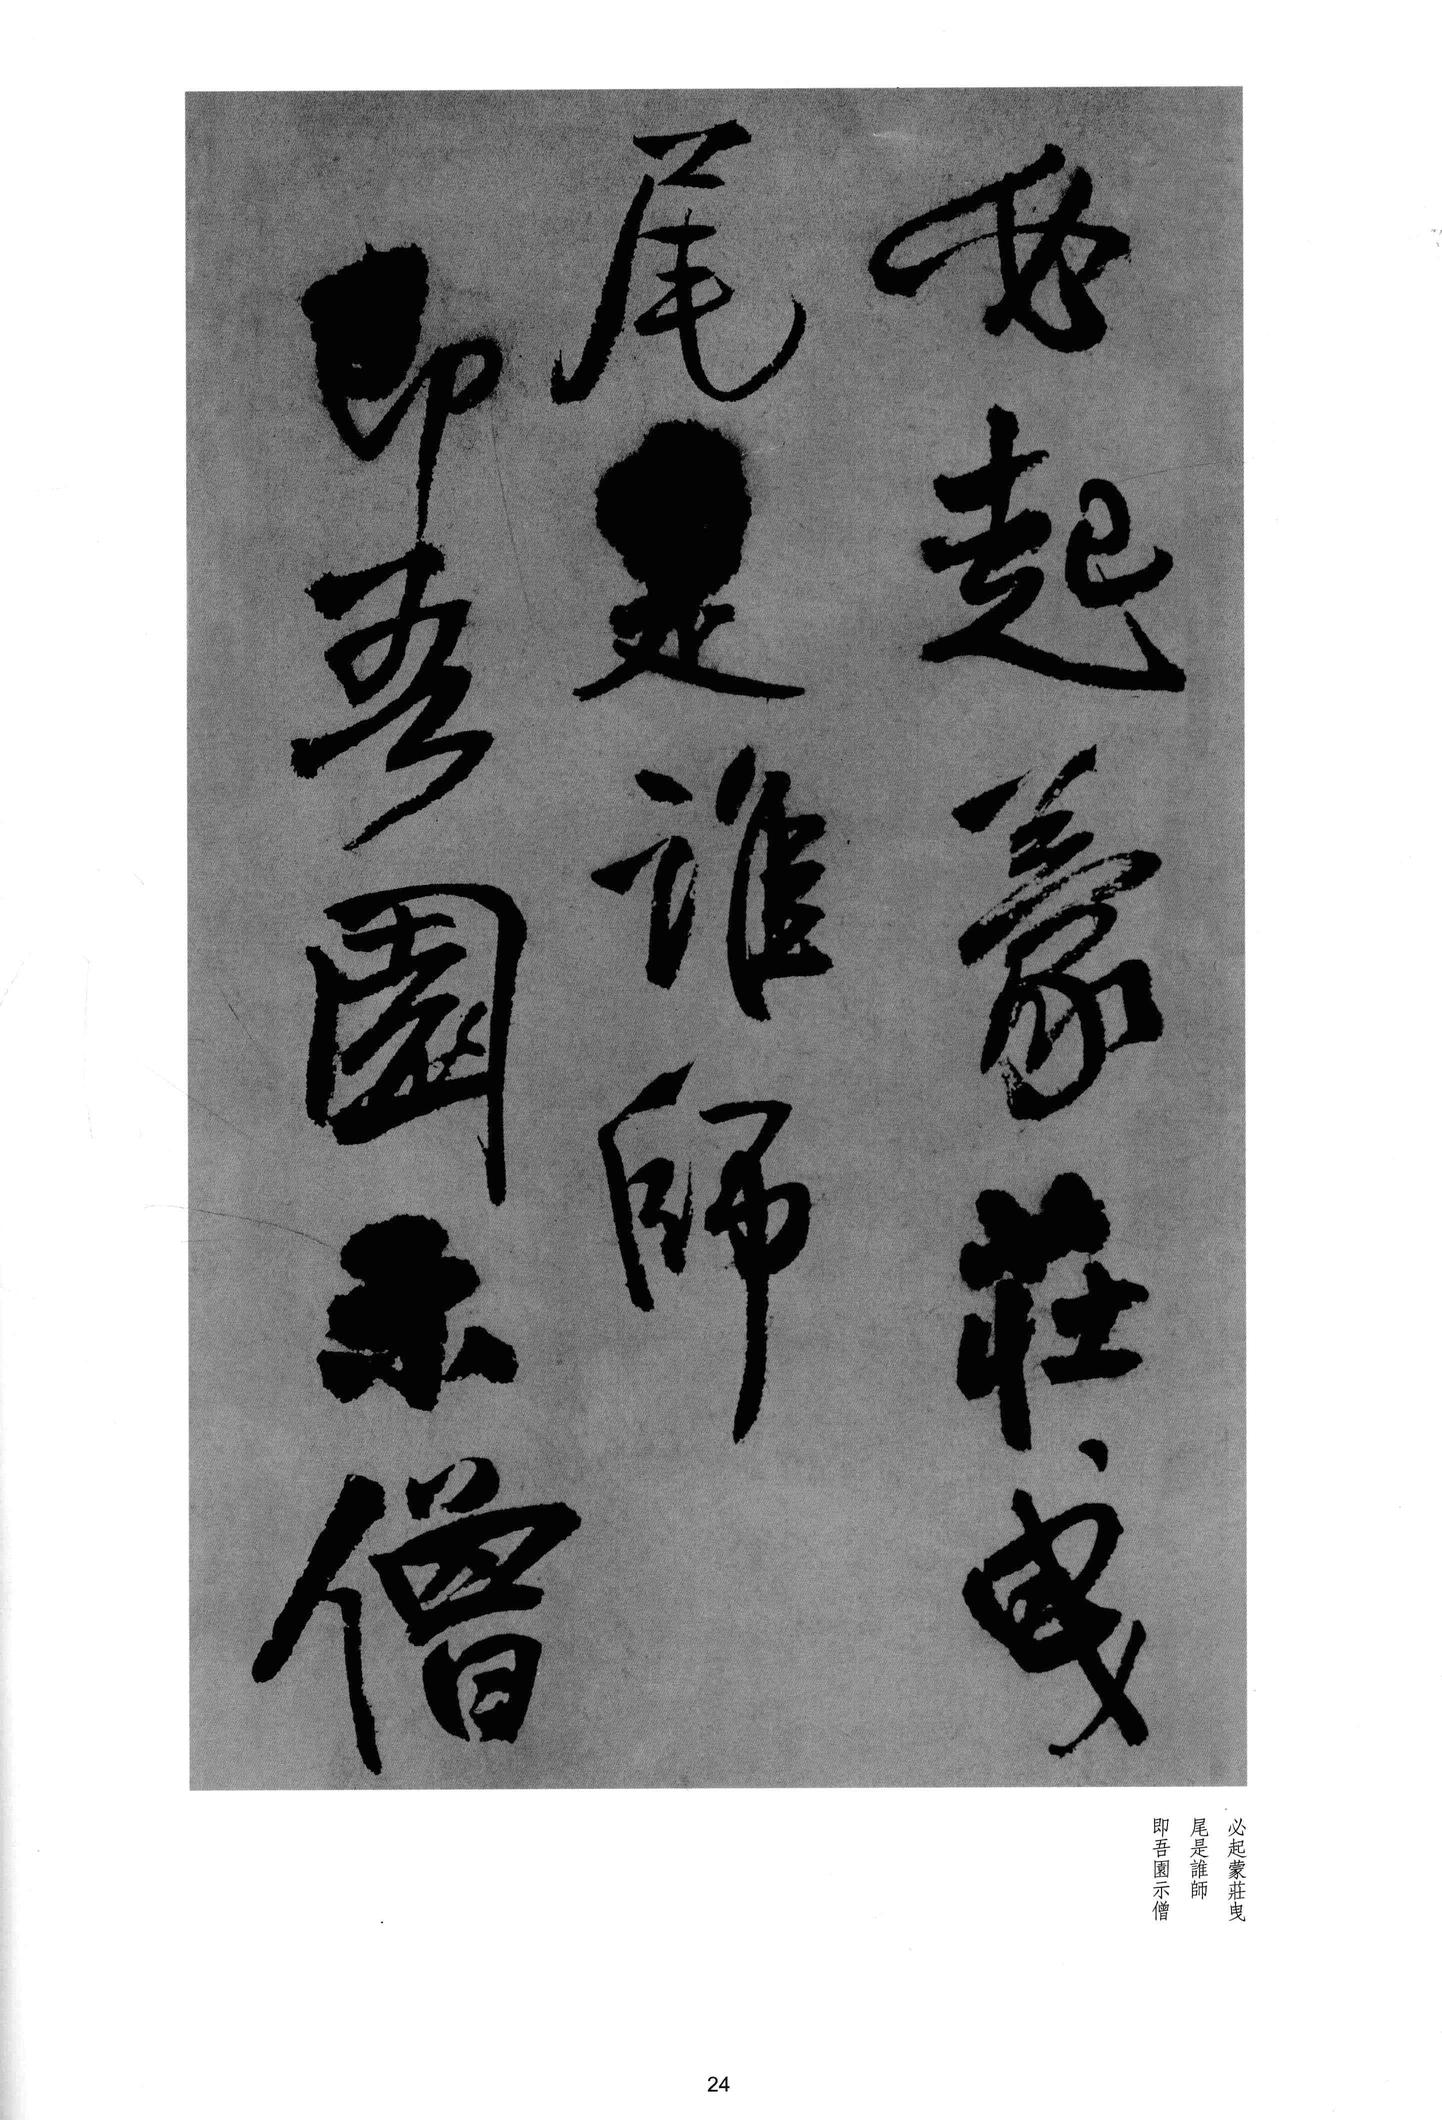 必起蒙莊曳
尾是誰師
即吾園示僧
必起蒙莊曳
尾是誰師
即吾園示僧
24